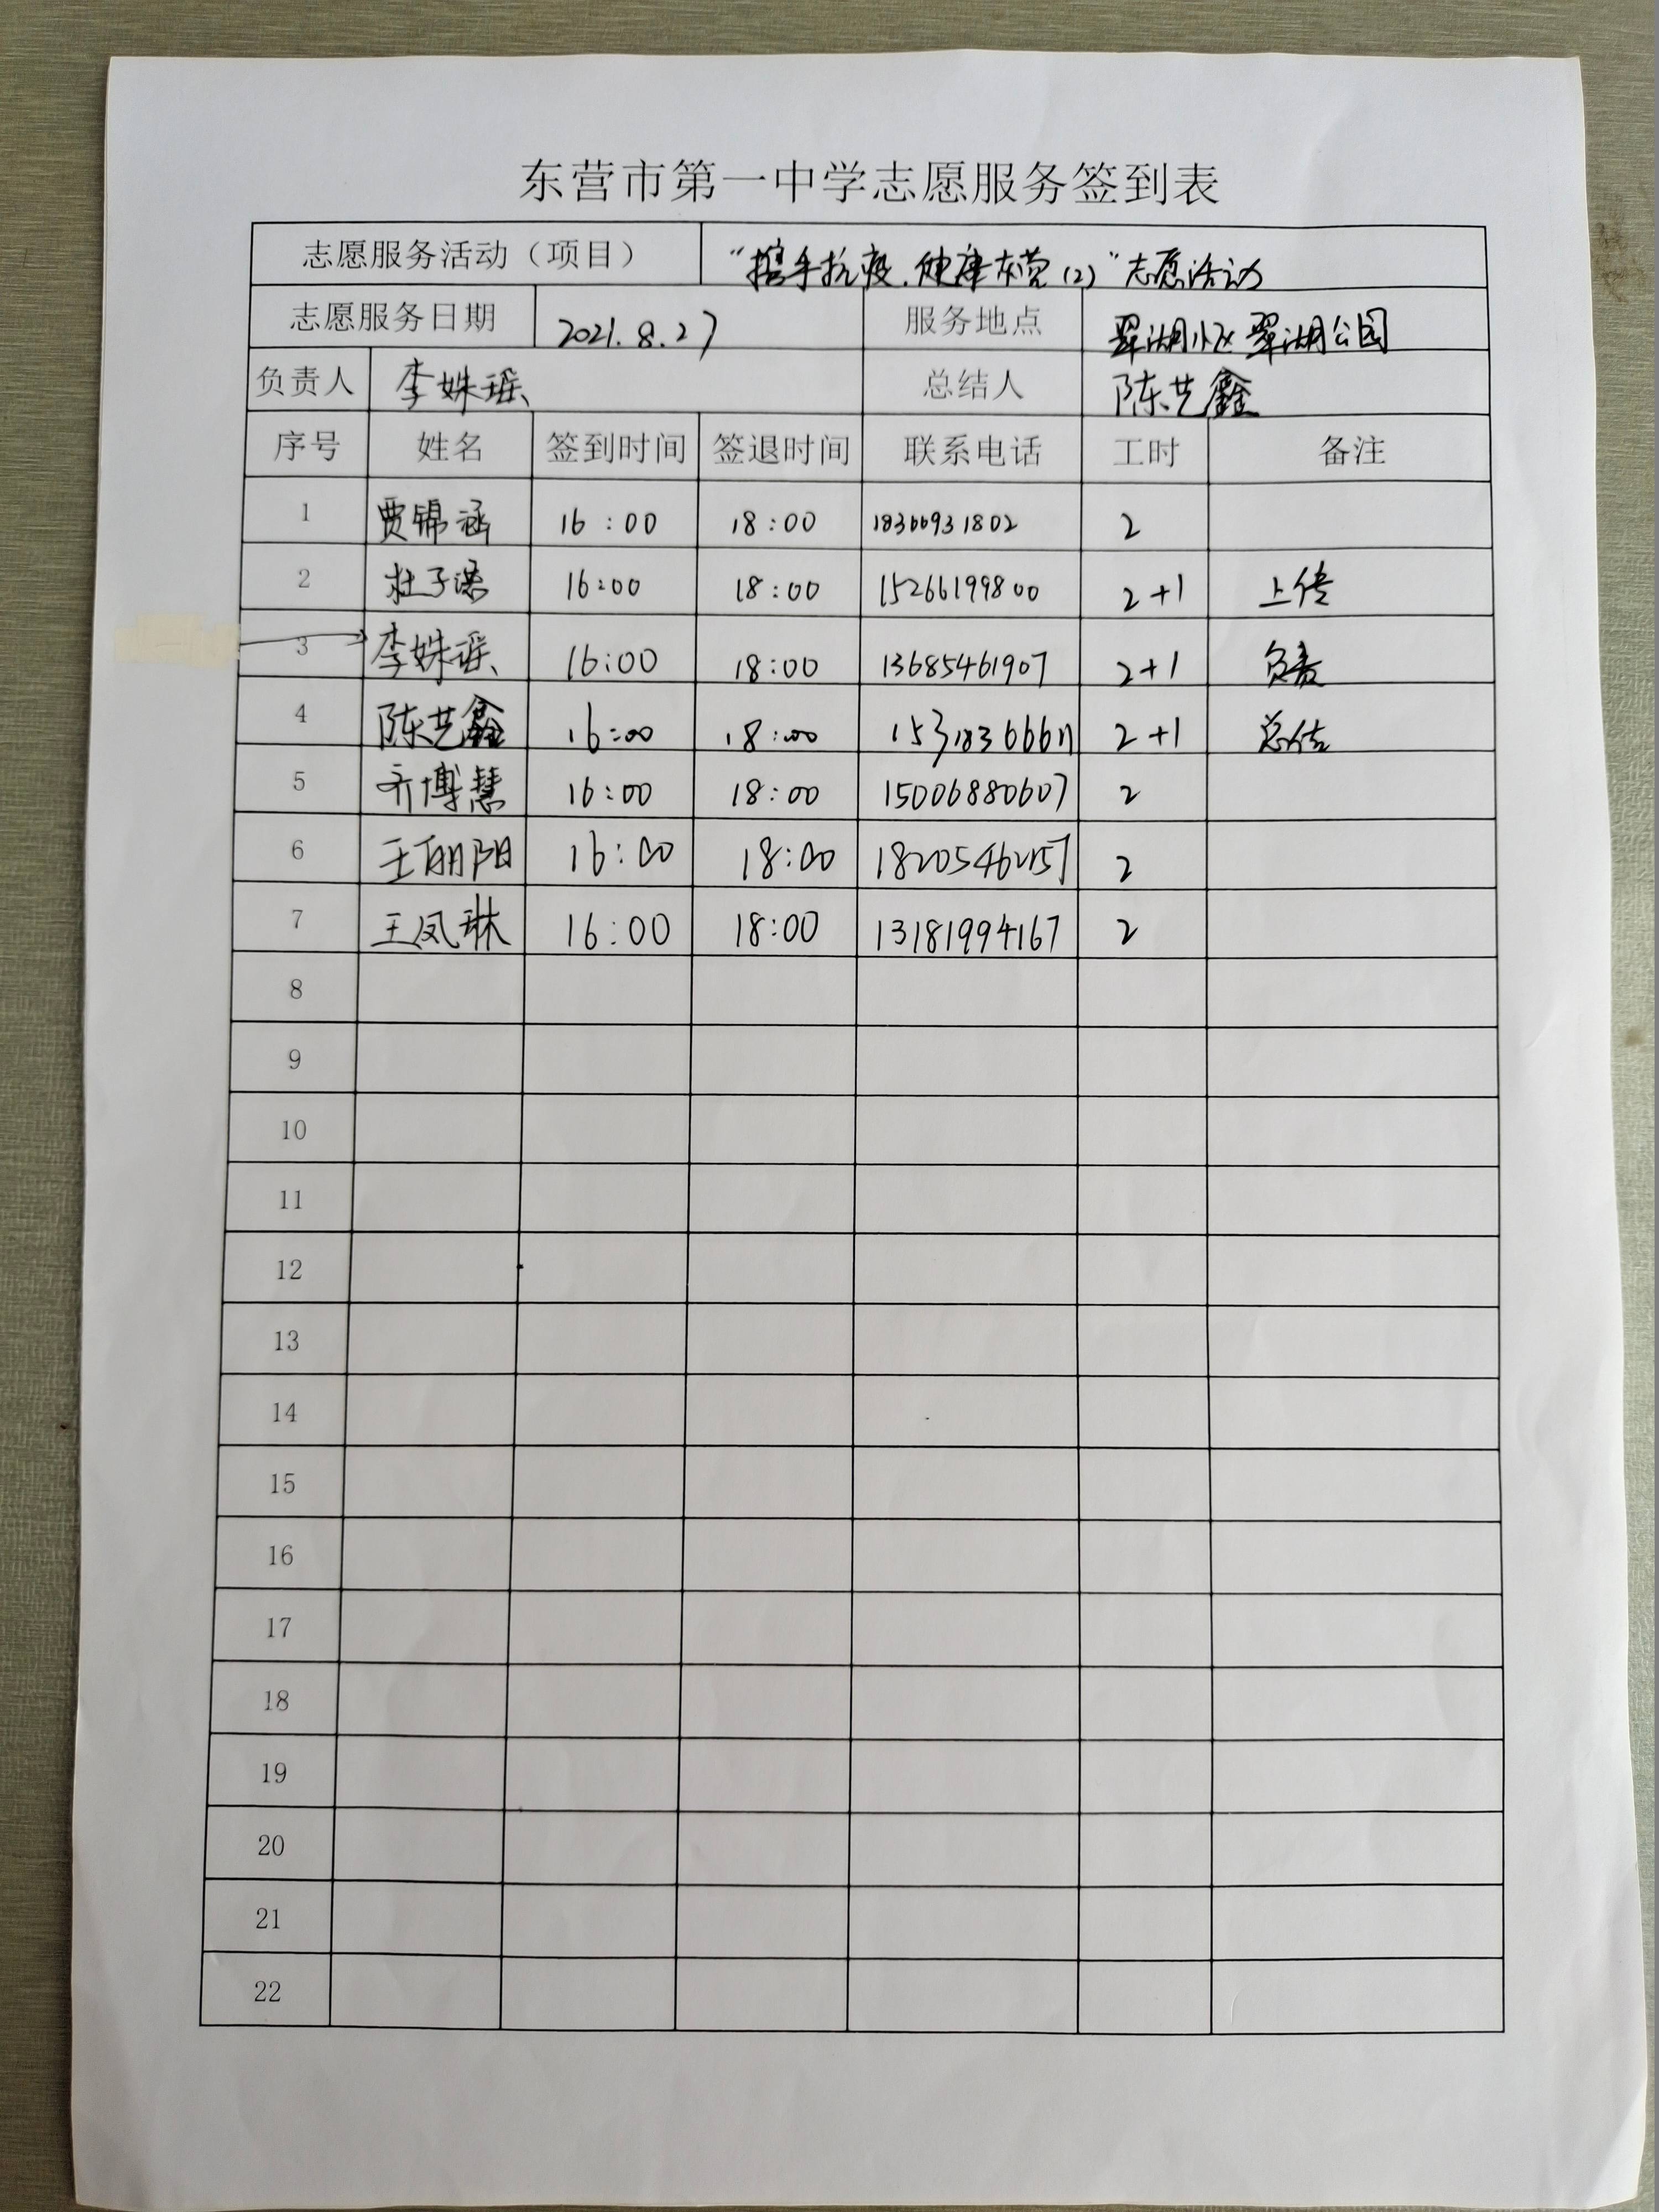 东营市第一中学志愿服务签到表
志愿服务活动（项目） “携手抗疫.健康东营（2）”志愿活动
志愿服务日期 2021.8.27 服务地点 翠湖小区翠湖公园
负责人 李姝瑶 总结人 陈艺鑫
序号 姓名 签到时间 签退时间 联系电话 工时 备注
1 贾锦涵 16:00 18:00 18366931802 2
2 杜子 16:00 18:00 15266199800 2+1 上传
3 李姝瑶 16:00 18:00 13685461907 2+1 负责
4 陈艺鑫 16:00 18:00 2+1 总结
5 齐博慧 16:00 18:00 15006880607 2
6 王朝阳 16:00 18:00 2
7 王凤琳 16:00 18:00 13181994167 2
8
9
10
11
12
13
14
15
16
17
18
19
20
21
22